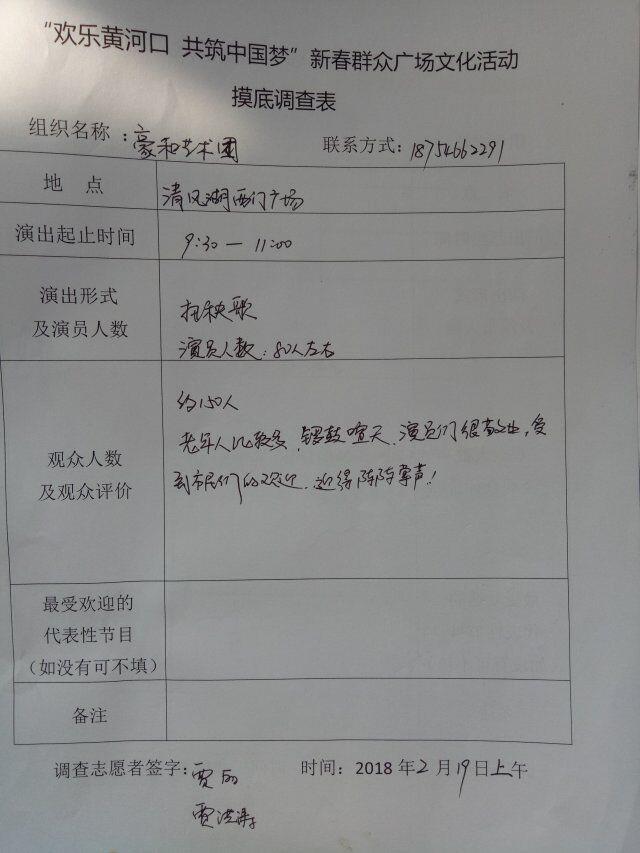 “欢乐黄河口 共筑中国梦”新春群众广场文化活动
摸底调查表
组织名称：豪和艺术团 联系方式：18754662291
地 点 清风湖西门广场
演出起止时间 9:30 — 11:00
演出形式
及演员人数
扭秧歌
演员人数：80人左右
观众人数
及观众评价
约150人
老年人比较多，锣鼓喧天，演员们很敬业，受
到市民们的欢迎，迎得阵阵掌声！
最受欢迎的
代表性节目
（如没有可不填）
备注
调查志愿者签字：贾 时间：2018年2月19日上午
贾洪涛